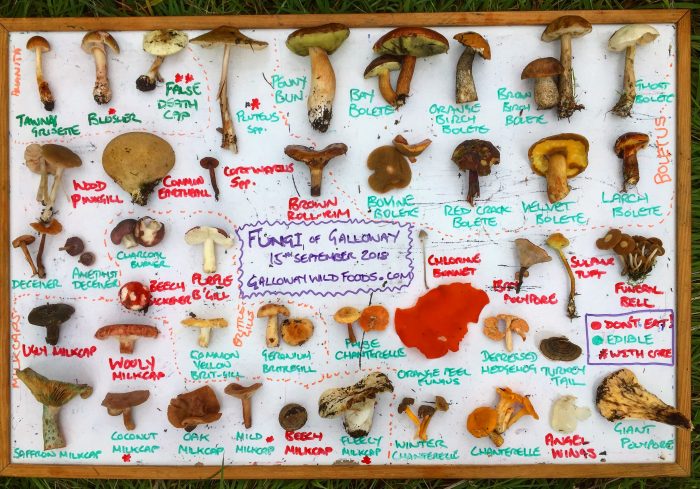 AMANITA
TAWNY
GRISETTE
BLUSHER
*
**
FALSE
DEATH
CAP
*
PLUTEUS
SPP.
PENNY
BUN
BAY
BOLETE
ORANGE
BIRCH
BOLETE
BROWN
BIRCH
BOLETE
GHOST
BOLETE
BOLETUS
WOOD
PINKGILL
COMMON
EARTHBALL
CORTINARIUS
SPP.
BROWN
ROLL-RIM
BOVINE
BOLETE
RED CRACK
BOLETE
VELVET
BOLETE
LARCH
BOLETE
DECEIVER
AMETHYST
DECEIVER
CHARCOAL
BURNER
BEECH
SICKENER
PURPLE
B'GILL
FUNGI OF GALLOWAY
15TH SEPTEMBER 2018
GALLOWAYWILDFOODS.COM
CHLORINE
BONNET
BAY
POLYPORE
SULPHUR
TUFT
FUNERAL
BELL
MILKCAPS
UGLY MILKCAP
WOOLY
MILKCAP
COMMON
YELLOW
BRIT-GILL
BRITTLE
GILLS
GERANIUM
BRITTLEGILL
FALSE
CHANTERELLE
ORANGE PEEL
FUNGUS
DEPRESSED
HEDGEHOG
TURKEY
TAIL
DON'T EAT
EDIBLE
* WITH CARE
SAFFRON MILKCAP
COCONUT
MILKCAP
*
OAK
MILKCAP
MILD
MILKCAP
*
BEECH
MILKCAP
FLEECY
MILKCAP
*
WINTER
CHANTERELLE
CHANTERELLE
ANGEL
WINGS
GIANT
POLYPORE